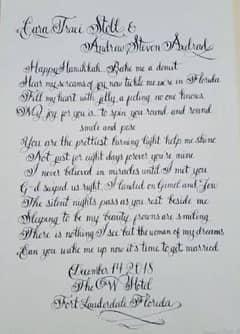 Cara Traci Stoll &
Andrew Steven Axelrad
Happy Hanukkah. Bake me a donut
Hear my screams of joy now tickle me were in Florida
Fill my heart with jelly, a feeling no one knows
My joy for you is to spin you round and round
smile and pose
You are the prettiest burning light help me shine
Not just for eight days forever you're mine
I never believed in miracles until I met you
G-d swiped us right. I landed on Gimel and "Jew
The silent nights pass as you rest beside me
Sleeping to be my beauty frowns are smiling
There is nothing I see but the woman of my dreams
Can you wake me up now it's time to get married
December 14 2018
The W Hotel
Fort Lauderdale Florida